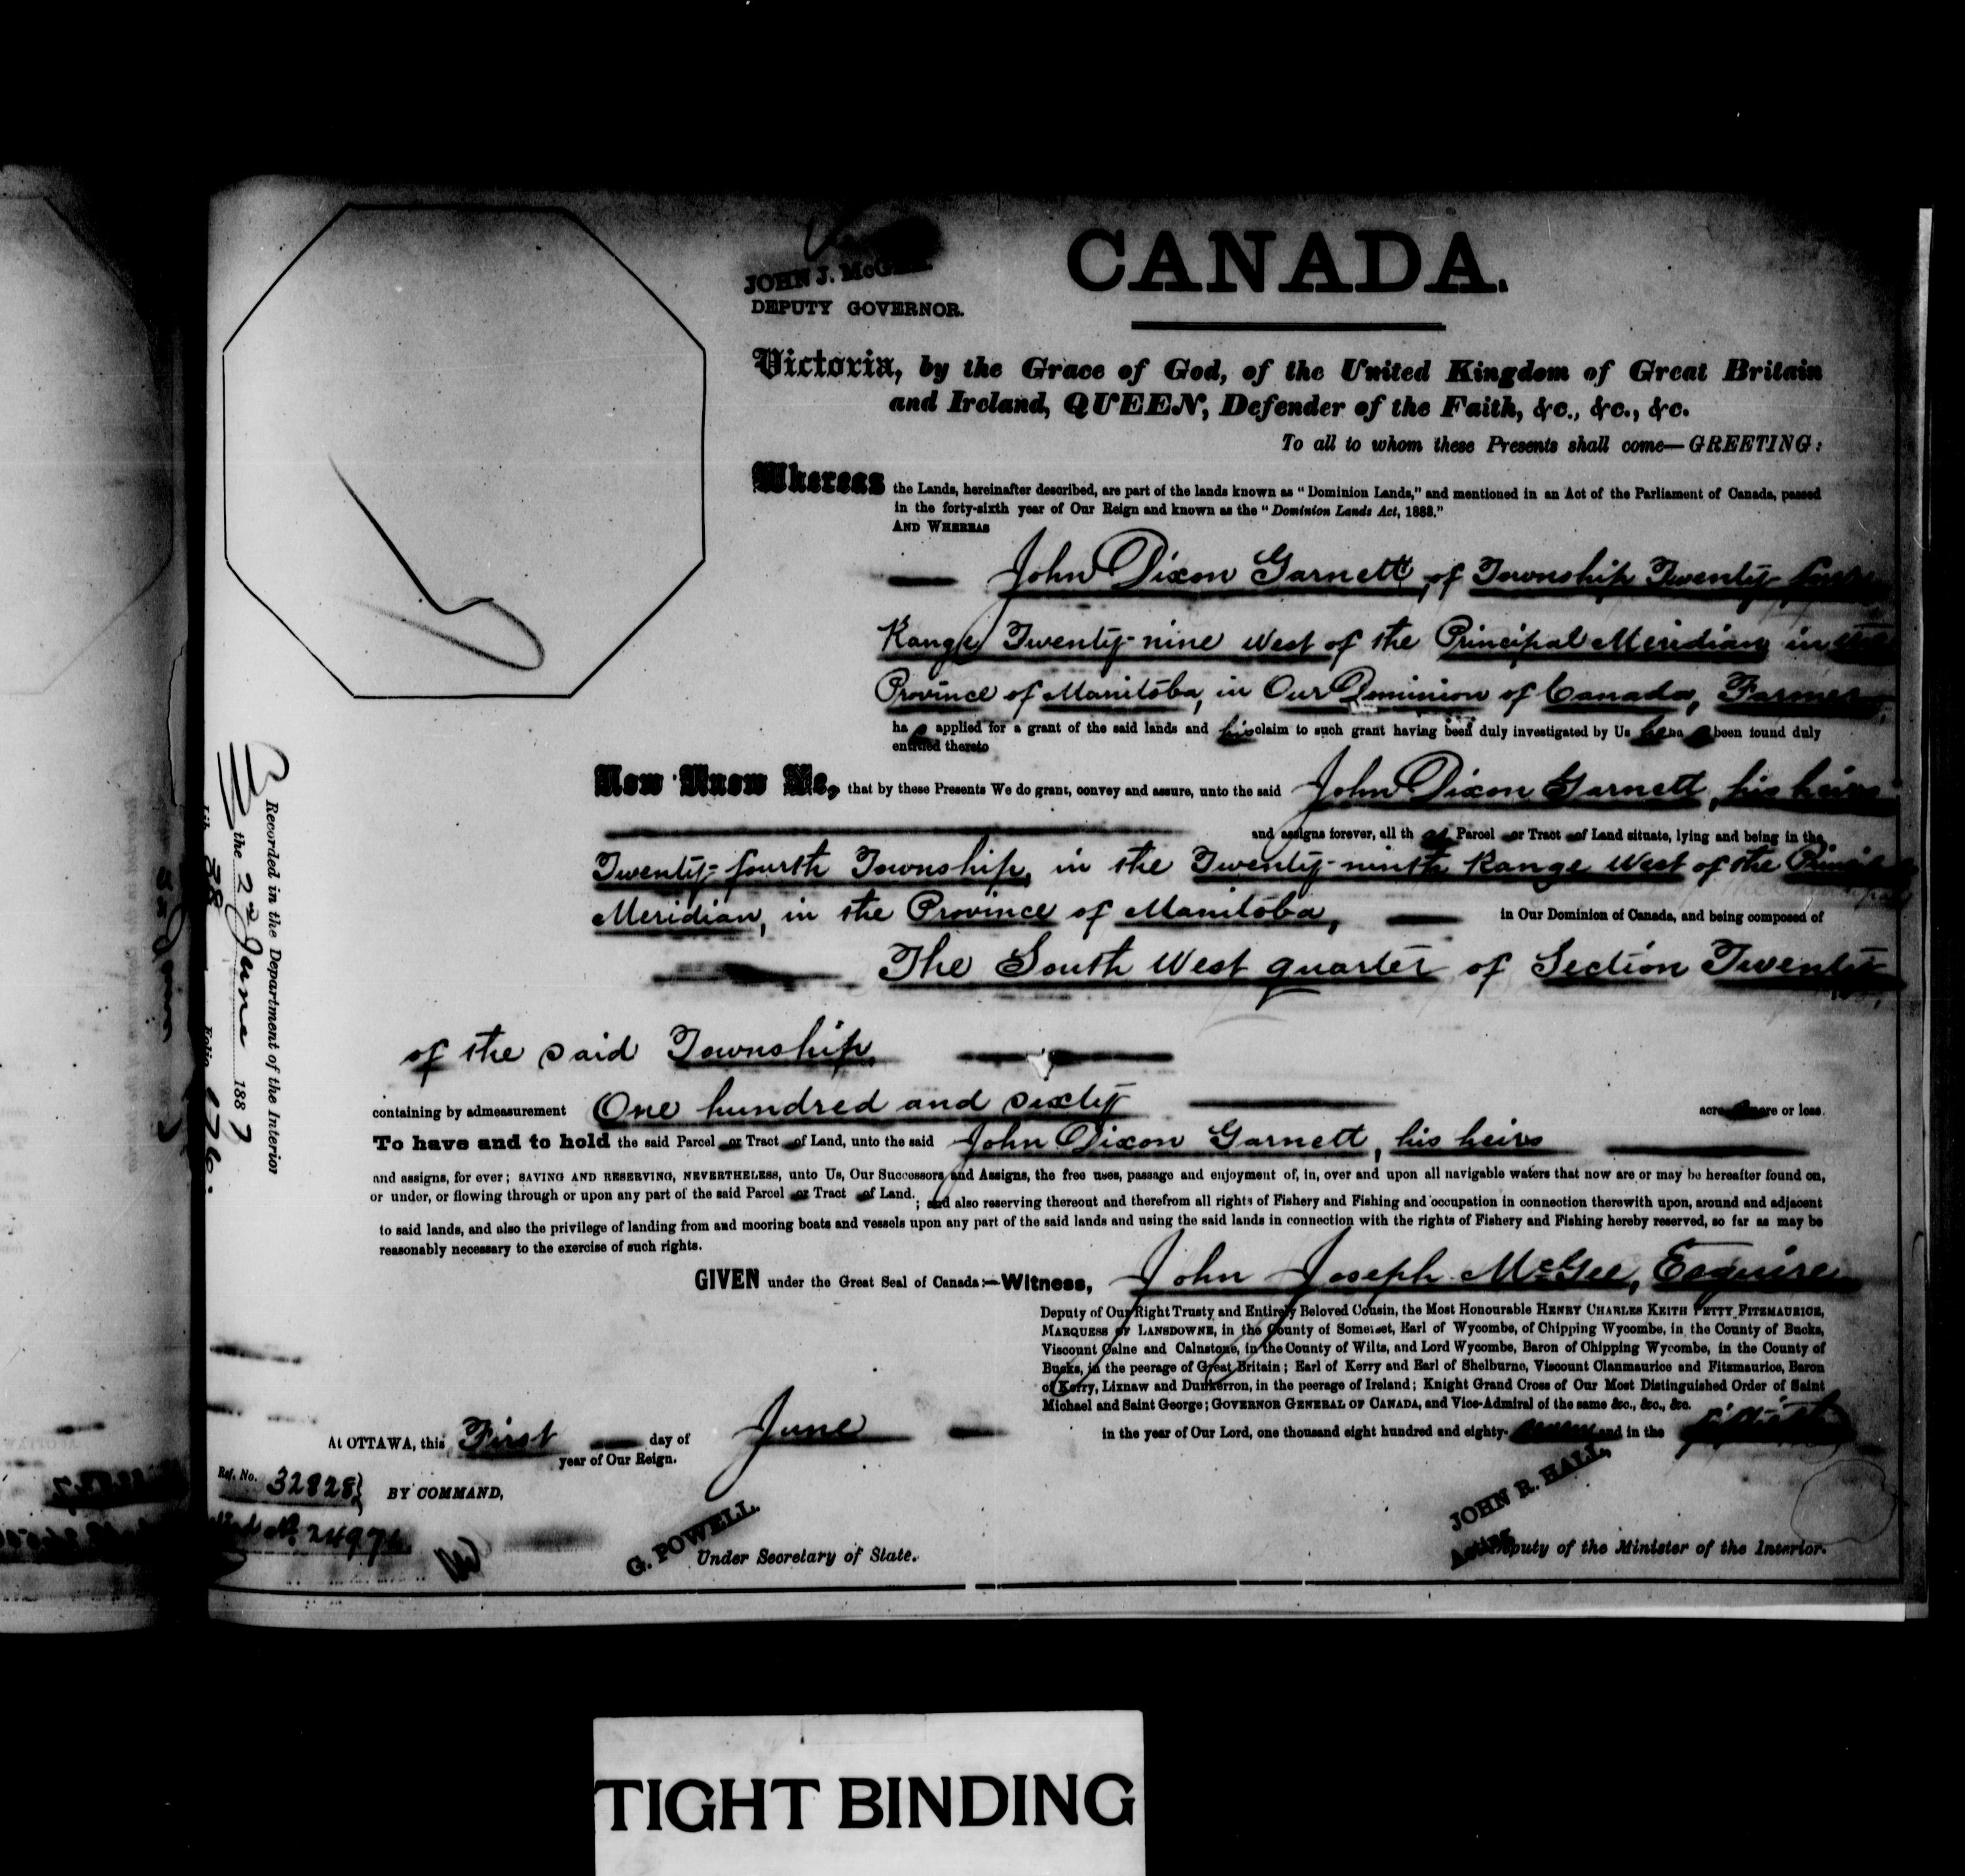 JOHN J. McGEE.
DEPUTY GOVERNOR.
CANADA.
Victoria, by the Grace of God, of the United Kingdom of Great Britain
and Ireland, QUEEN, Defender of the Faith, &c., &c., &c.
To all to whom these Presents shall come—GREETING:
Whereas the Lands, hereinafter described, are part of the lands known as "Dominion Lands," and mentioned in an Act of the Parliament of Canada, passed
in the forty-sixth year of Our Reign and known as the "Dominion Lands Act, 1883."
AND WHEREAS
John Dixon Garnett, of Township Twenty-four
Range Twenty-nine West of the Principal Meridian in the
Province of Manitoba, in Our Dominion of Canada, Farmer,
ha applied for a grant of the said lands and his claim to such grant having been duly investigated by Us he has been found duly
entitled thereto
Now Know Ye, that by these Presents We do grant, convey and assure, unto the said John Dixon Garnett, his heirs
and assigns forever, all that Parcel or Tract of Land situate, lying and being in the
Twenty-fourth Township, in the Twenty-ninth Range West of the Principal
Meridian, in the Province of Manitoba, in Our Dominion of Canada, and being composed of
The South West quarter of Section Twenty
of the said Township.
containing by admeasurement One hundred and sixty acres more or less.
To have and to hold the said Parcel or Tract of Land, unto the said John Dixon Garnett, his heirs
and assigns, for ever; SAVING AND RESERVING, NEVERTHELESS, unto Us, Our Successors and Assigns, the free uses, passage and enjoyment of, in, over and upon all navigable waters that now are or may be hereafter found on,
or under, or flowing through or upon any part of the said Parcel or Tract of Land. ; and also reserving thereout and therefrom all rights of Fishery and Fishing and occupation in connection therewith upon, around and adjacent
to said lands, and also the privilege of landing from and mooring boats and vessels upon any part of the said lands and using the said lands in connection with the rights of Fishery and Fishing hereby reserved, so far as may be
reasonably necessary to the exercise of such rights.
GIVEN under the Great Seal of Canada:—Witness, John Joseph McGee, Esquire
Deputy of Our Right Trusty and Entirely Beloved Cousin, the Most Honourable HENRY CHARLES KEITH PETTY FITZMAURICE,
MARQUESS OF LANSDOWNE, in the County of Somerset, Earl of Wycombe, of Chipping Wycombe, in the County of Bucks,
Viscount Calne and Calnstone, in the County of Wilts, and Lord Wycombe, Baron of Chipping Wycombe, in the County of
Bucks, in the peerage of Great Britain; Earl of Kerry and Earl of Shelburne, Viscount Clanmaurice and Fitzmaurice, Baron
of Kerry, Lixnaw and Dunkerron, in the peerage of Ireland; Knight Grand Cross of Our Most Distinguished Order of Saint
Michael and Saint George; GOVERNOR GENERAL OF CANADA, and Vice-Admiral of the same &c., &c., &c.
At OTTAWA, this First day of June in the year of Our Lord, one thousand eight hundred and eighty-seven and in the fiftieth
year of Our Reign.
Ref. No. 32828
BY COMMAND,
G. POWELL.
Under Secretary of State.
JOHN R. HALL,
Acting Deputy of the Minister of the Interior.
Recorded in the Department of the Interior
the 2nd June 1887
38 Folio 176.
TIGHT BINDING